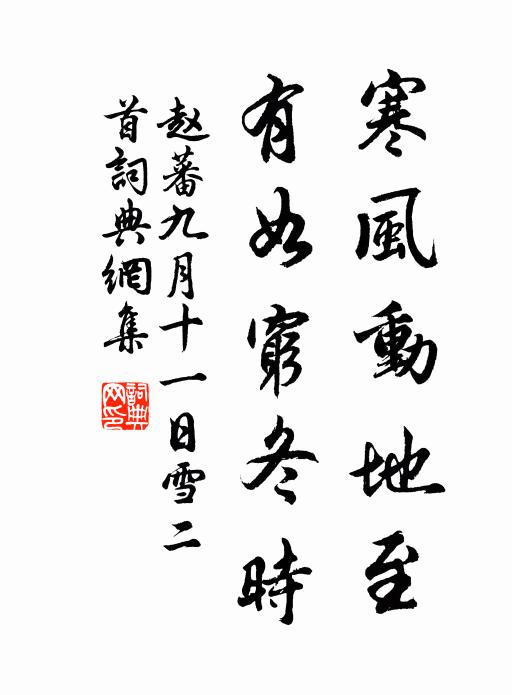 寒風動地至
有如窮冬時
赵蕃九月十一日雪二
首詞典網集
詞典网印